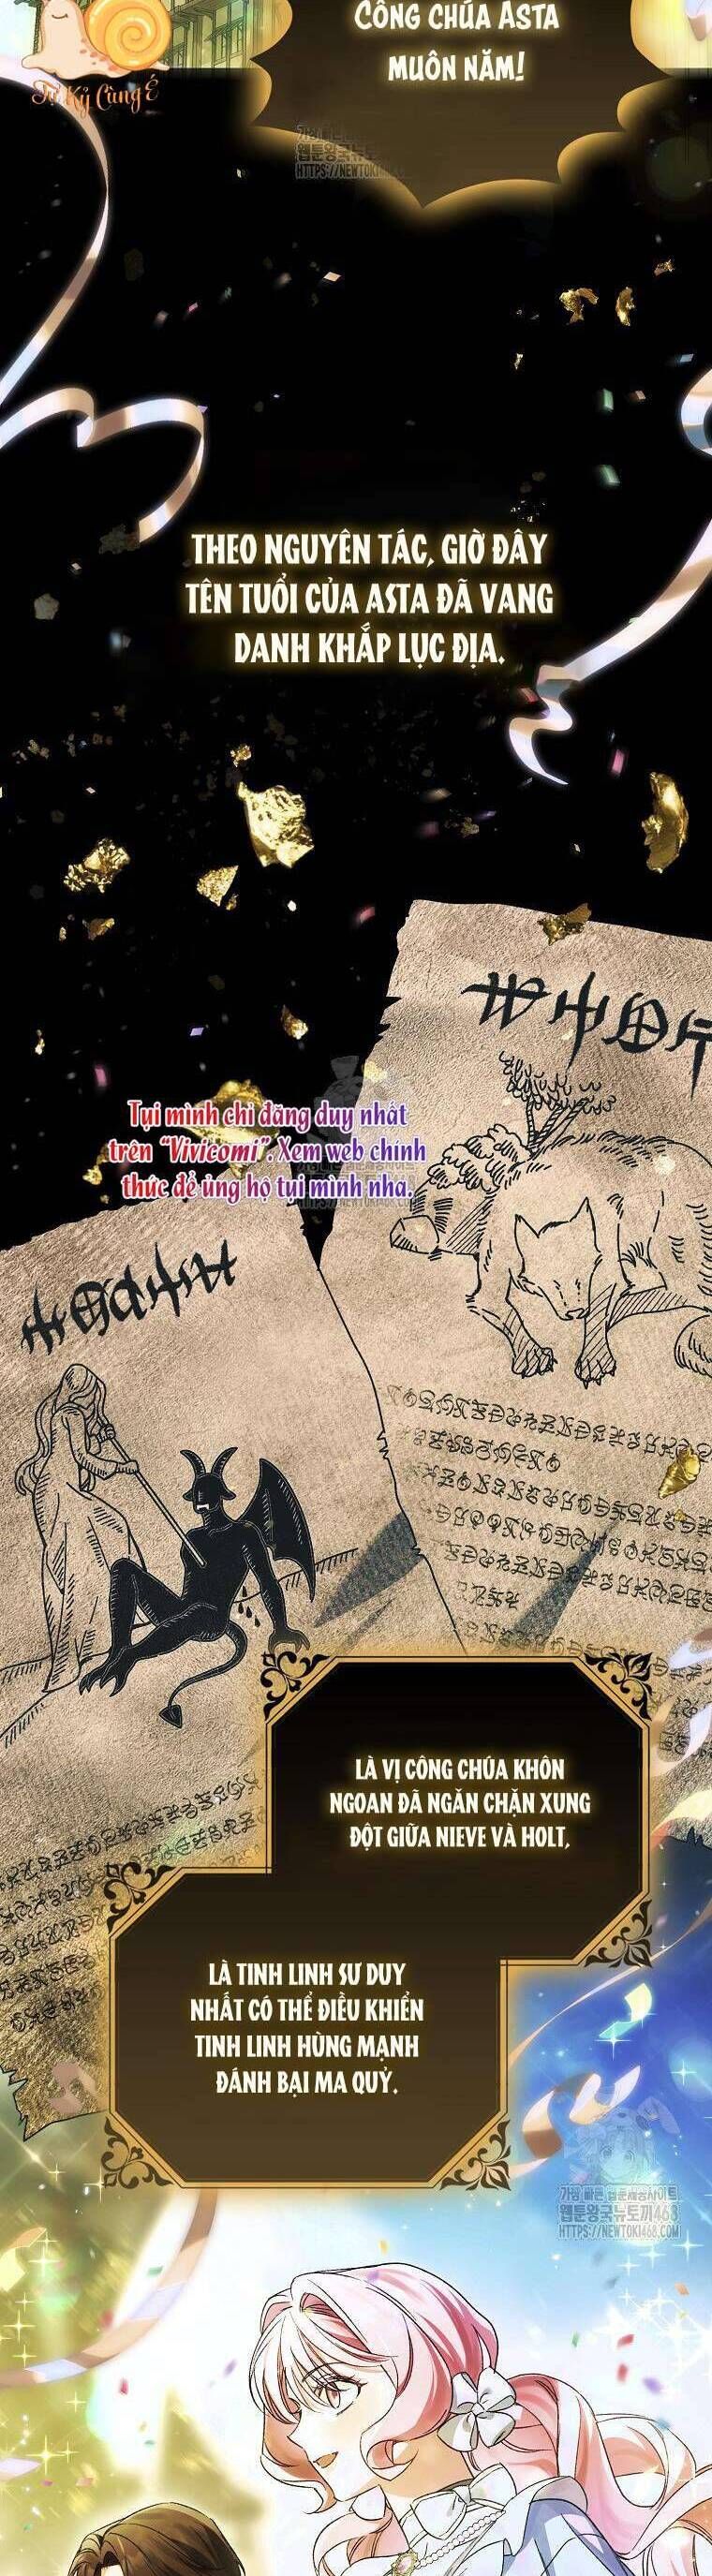 CÔNG CHÚA ASTA
MUÔN NĂM!
Tự Kỷ Cùng É
가장 빠른 웹툰제공사이트
웹툰왕국뉴토
HTTPS://NEWTOKI
THEO NGUYÊN TÁC, GIỜ ĐÂY
TÊN TUỔI CỦA ASTA ĐÃ VANG
DANH KHẮP LỤC ĐỊA.
Tụi mình chỉ đăng duy nhất
trên “Vivicomi”. Xem web chính
thức để ủng hộ tụi mình nha.
LÀ VỊ CÔNG CHÚA KHÔN
NGOAN ĐÃ NGĂN CHẶN XUNG
ĐỘT GIỮA NIEVE VÀ HOLT,
LÀ TINH LINH SƯ DUY
NHẤT CÓ THỂ ĐIỀU KHIỂN
TINH LINH HÙNG MẠNH
ĐÁNH BẠI MA QUỶ.
가장 빠른 웹툰제공사이트
웹툰왕국뉴토끼463
HTTPS://NEWTOKI468.COM